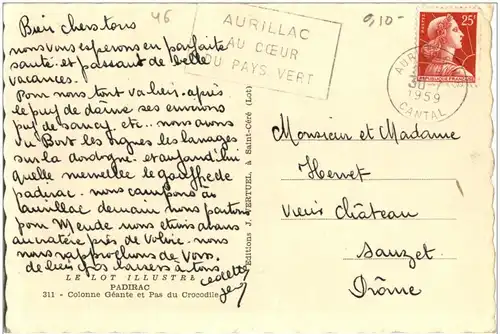 46
9,10-
AURILLAC
AU CŒUR
DU PAYS VERT
25F
POSTES
REPUBLIQUE FRANÇAISE
AUR
30-7
1959
CANTAL
Bien chers tous
nous vous esperons en parfaite
santé et passant de belle
vacances.
Pour nous tout va bien. après
le puy de dôme ses environs
puy de sancy etc.. nous avons
vu Bort les orgues les barrages
sur la dordogne. et aujourd'hui
quelle merveille le gouffre de
padirac. nous campons à
aurillac demain nous partons
pour Mende nous étions dans
un cratère près de Volvic. nous
nous rapprochons de vous.
de bien gros baisers à tous
Monsieur et Madame
Hervet
Vieux Château
Sauzet
Drôme
Editions J. VERTUEL, à Saint-Céré (Lot)
LE LOT ILLUSTRE
PADIRAC
311 - Colonne Géante et Pas du Crocodile